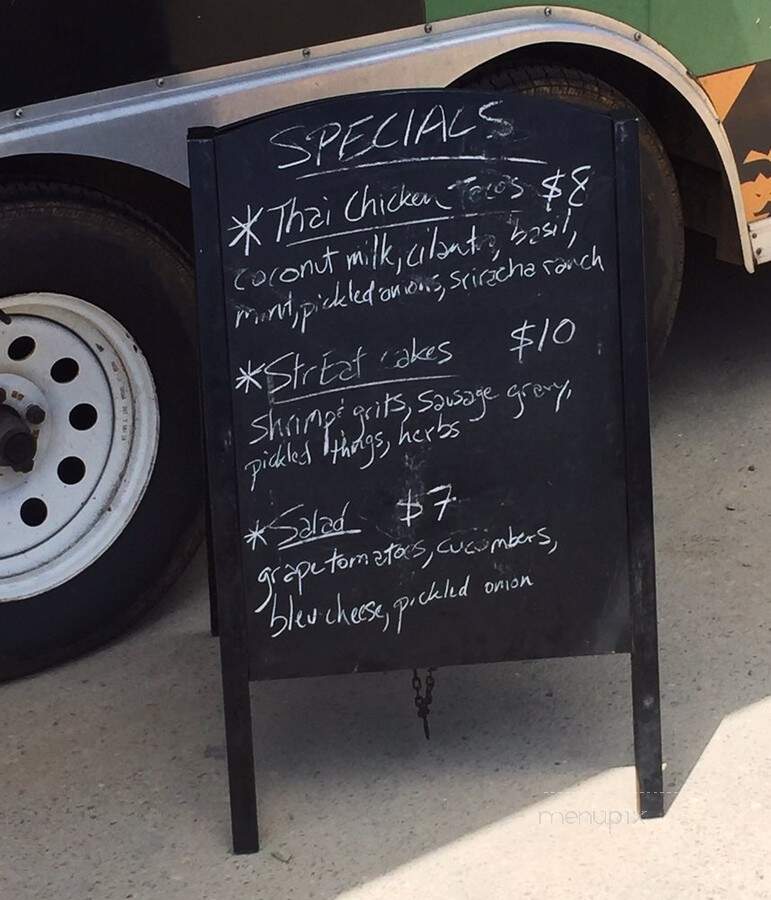 SPECIALS
* Thai Chicken Tacos $8
coconut milk, cilantro, basil,
mint, pickled onions, sriracha ranch
* StrEat cakes $10
shrimp & grits, sausage gravy,
pickled things, herbs
* Salad $7
grape tomatoes, cucumbers,
bleu cheese, pickled onion
menupix